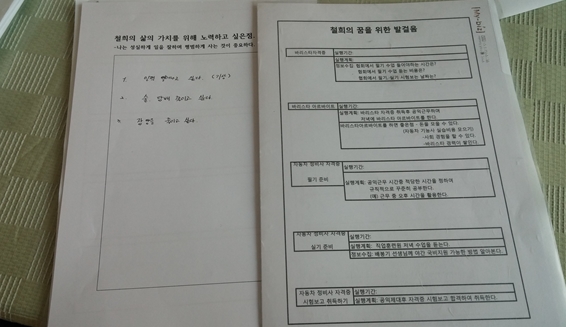 철희의 삶의 가치를 위해 노력하고 싶은점.
-나는 성실하게 일을 잘하며 평범하게 사는 것이 중요하다.
1
2 술 담배
3
철희의 꿈을 위한 발걸음
바리스타자격증
실행기간:
실행계획:
정보수집: 협회에서 필기 수업 들어야하는 시간은?
협회에서 필기 수업 듣는 비용은?
협회에서 필기, 실기 시험보는 날짜는?
바리스타 아르바이트
실행기간:
실행계획: 바리스타 자격증 취득후 공익근무하며
저녁에 바리스타 아르바이트를 한다.
바리스타아르바이트를 하면 좋은점 - 돈을 모을 수 있다.
(자동차 기능사 실습비용 모으기)
-사회 경험을 할 수 있다.
-바리스타 경력이 쌓인다.
자동차 정비사 자격증
필기 준비
실행기간:
실행계획: 공익근무 시간중 적당한 시간을 정하여
규칙적으로 꾸준히 공부한다.
(예) 근무 중 오후 시간을 활용한다.
자동차 정비사 자격증
실기 준비
실행기간:
실행계획: 직업훈련원 저녁 수업을 듣는다.
정보수집: 선생님께 야간 국비지원 가능한 방법 알아본다.
자동차 정비사 자격증
시험보고 취득하기
실행기간:
실행계획: 공익제대후 자격증 시험보고 합격하여 취득한다.